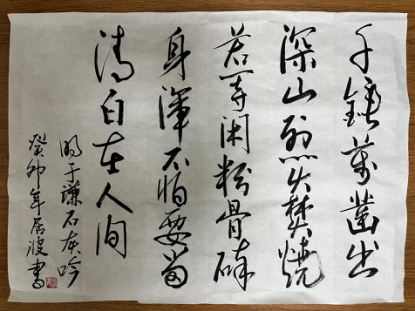 千锤萬凿出
深山烈火焚烧
若等闲粉骨碎
身浑不怕要留
清白在人间
明于谦石灰吟
癸卯年居波書